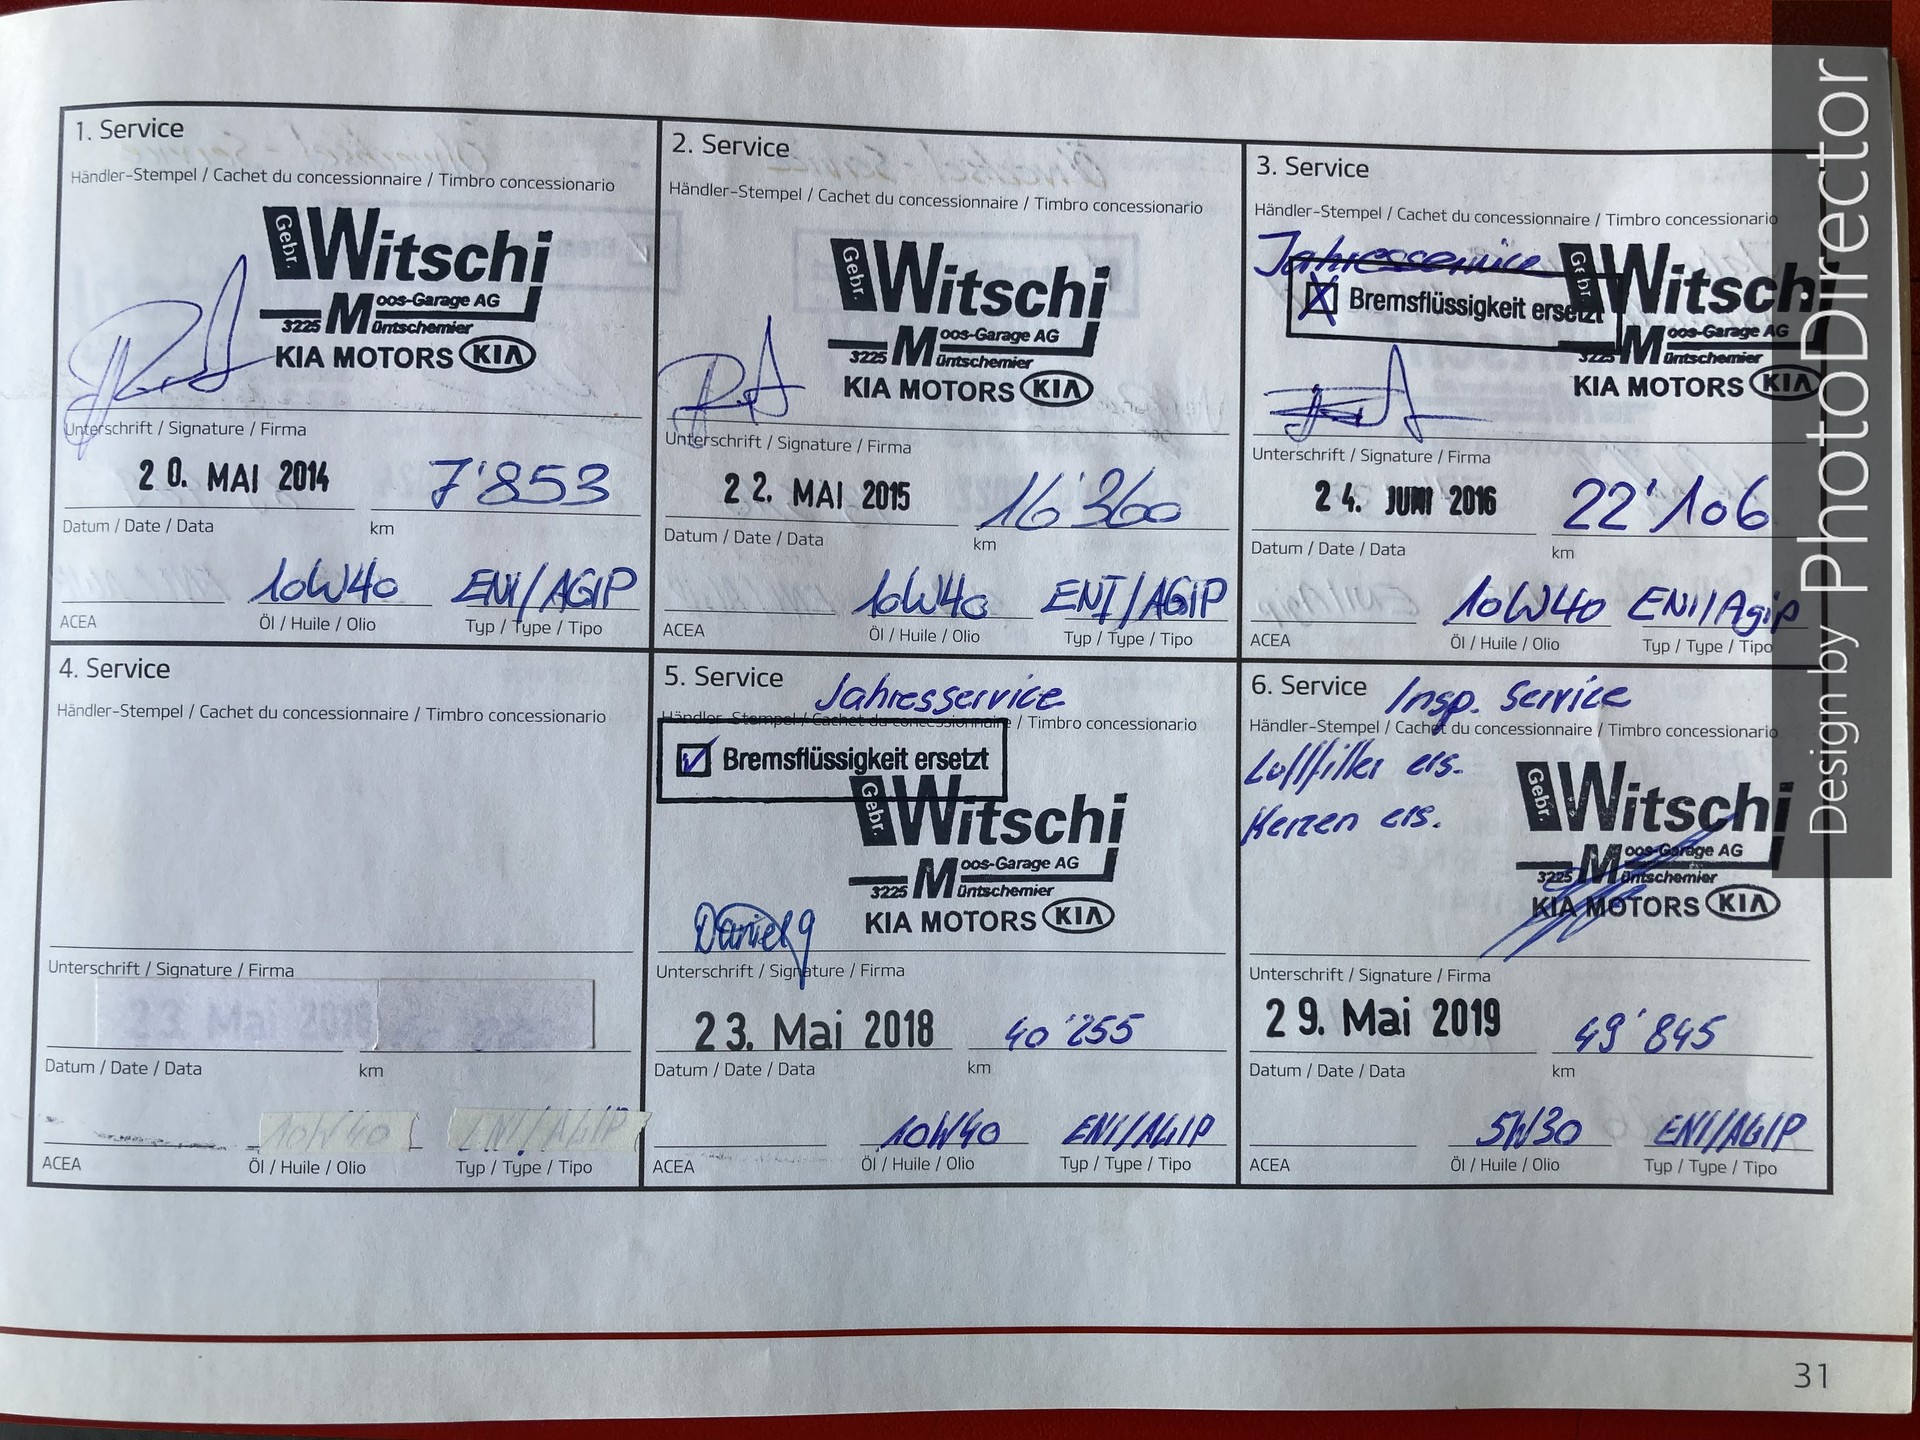 1. Service
Händler-Stempel / Cachet du concessionnaire / Timbro concessionario
Gebr. Witschi
Moos-Garage AG
3225 Müntschemier
KIA MOTORS KIA
Unterschrift / Signature / Firma
20. MAI 2014 7'853
Datum / Date / Data km
10W40 ENI/AGIP
ACEA Öl / Huile / Olio Typ / Type / Tipo
2. Service
Händler-Stempel / Cachet du concessionnaire / Timbro concessionario
Gebr. Witschi
Moos-Garage AG
3225 Müntschemier
KIA MOTORS KIA
Unterschrift / Signature / Firma
22. MAI 2015 16'360
Datum / Date / Data km
10W40 ENI/AGIP
ACEA Öl / Huile / Olio Typ / Type / Tipo
3. Service
Händler-Stempel / Cachet du concessionnaire / Timbro concessionario
Jahresservice
Bremsflüssigkeit ersetzt
Gebr. Witschi
Moos-Garage AG
3225 Müntschemier
KIA MOTORS KIA
Unterschrift / Signature / Firma
24. JUNI 2016 22'106
Datum / Date / Data km
10W40 ENI/Agip
ACEA Öl / Huile / Olio Typ / Type / Tipo
4. Service
Händler-Stempel / Cachet du concessionnaire / Timbro concessionario
Unterschrift / Signature / Firma
23. Mai 2018
Datum / Date / Data km
10W40 ENI/AGIP
ACEA Öl / Huile / Olio Typ / Type / Tipo
5. Service Jahresservice
Händler-Stempel / Cachet du concessionnaire / Timbro concessionario
Bremsflüssigkeit ersetzt
Gebr. Witschi
Moos-Garage AG
3225 Müntschemier
KIA MOTORS KIA
Unterschrift / Signature / Firma
23. Mai 2018 40'255
Datum / Date / Data km
10W40 ENI/AGIP
ACEA Öl / Huile / Olio Typ / Type / Tipo
6. Service Insp. Service
Händler-Stempel / Cachet du concessionnaire / Timbro concessionario
Luftfilter ers.
Kerzen ers.
Gebr. Witschi
Moos-Garage AG
3225 Müntschemier
KIA MOTORS KIA
Unterschrift / Signature / Firma
29. Mai 2019 49'845
Datum / Date / Data km
5W30 ENI/AGIP
ACEA Öl / Huile / Olio Typ / Type / Tipo
31
Design by PhotoDirector